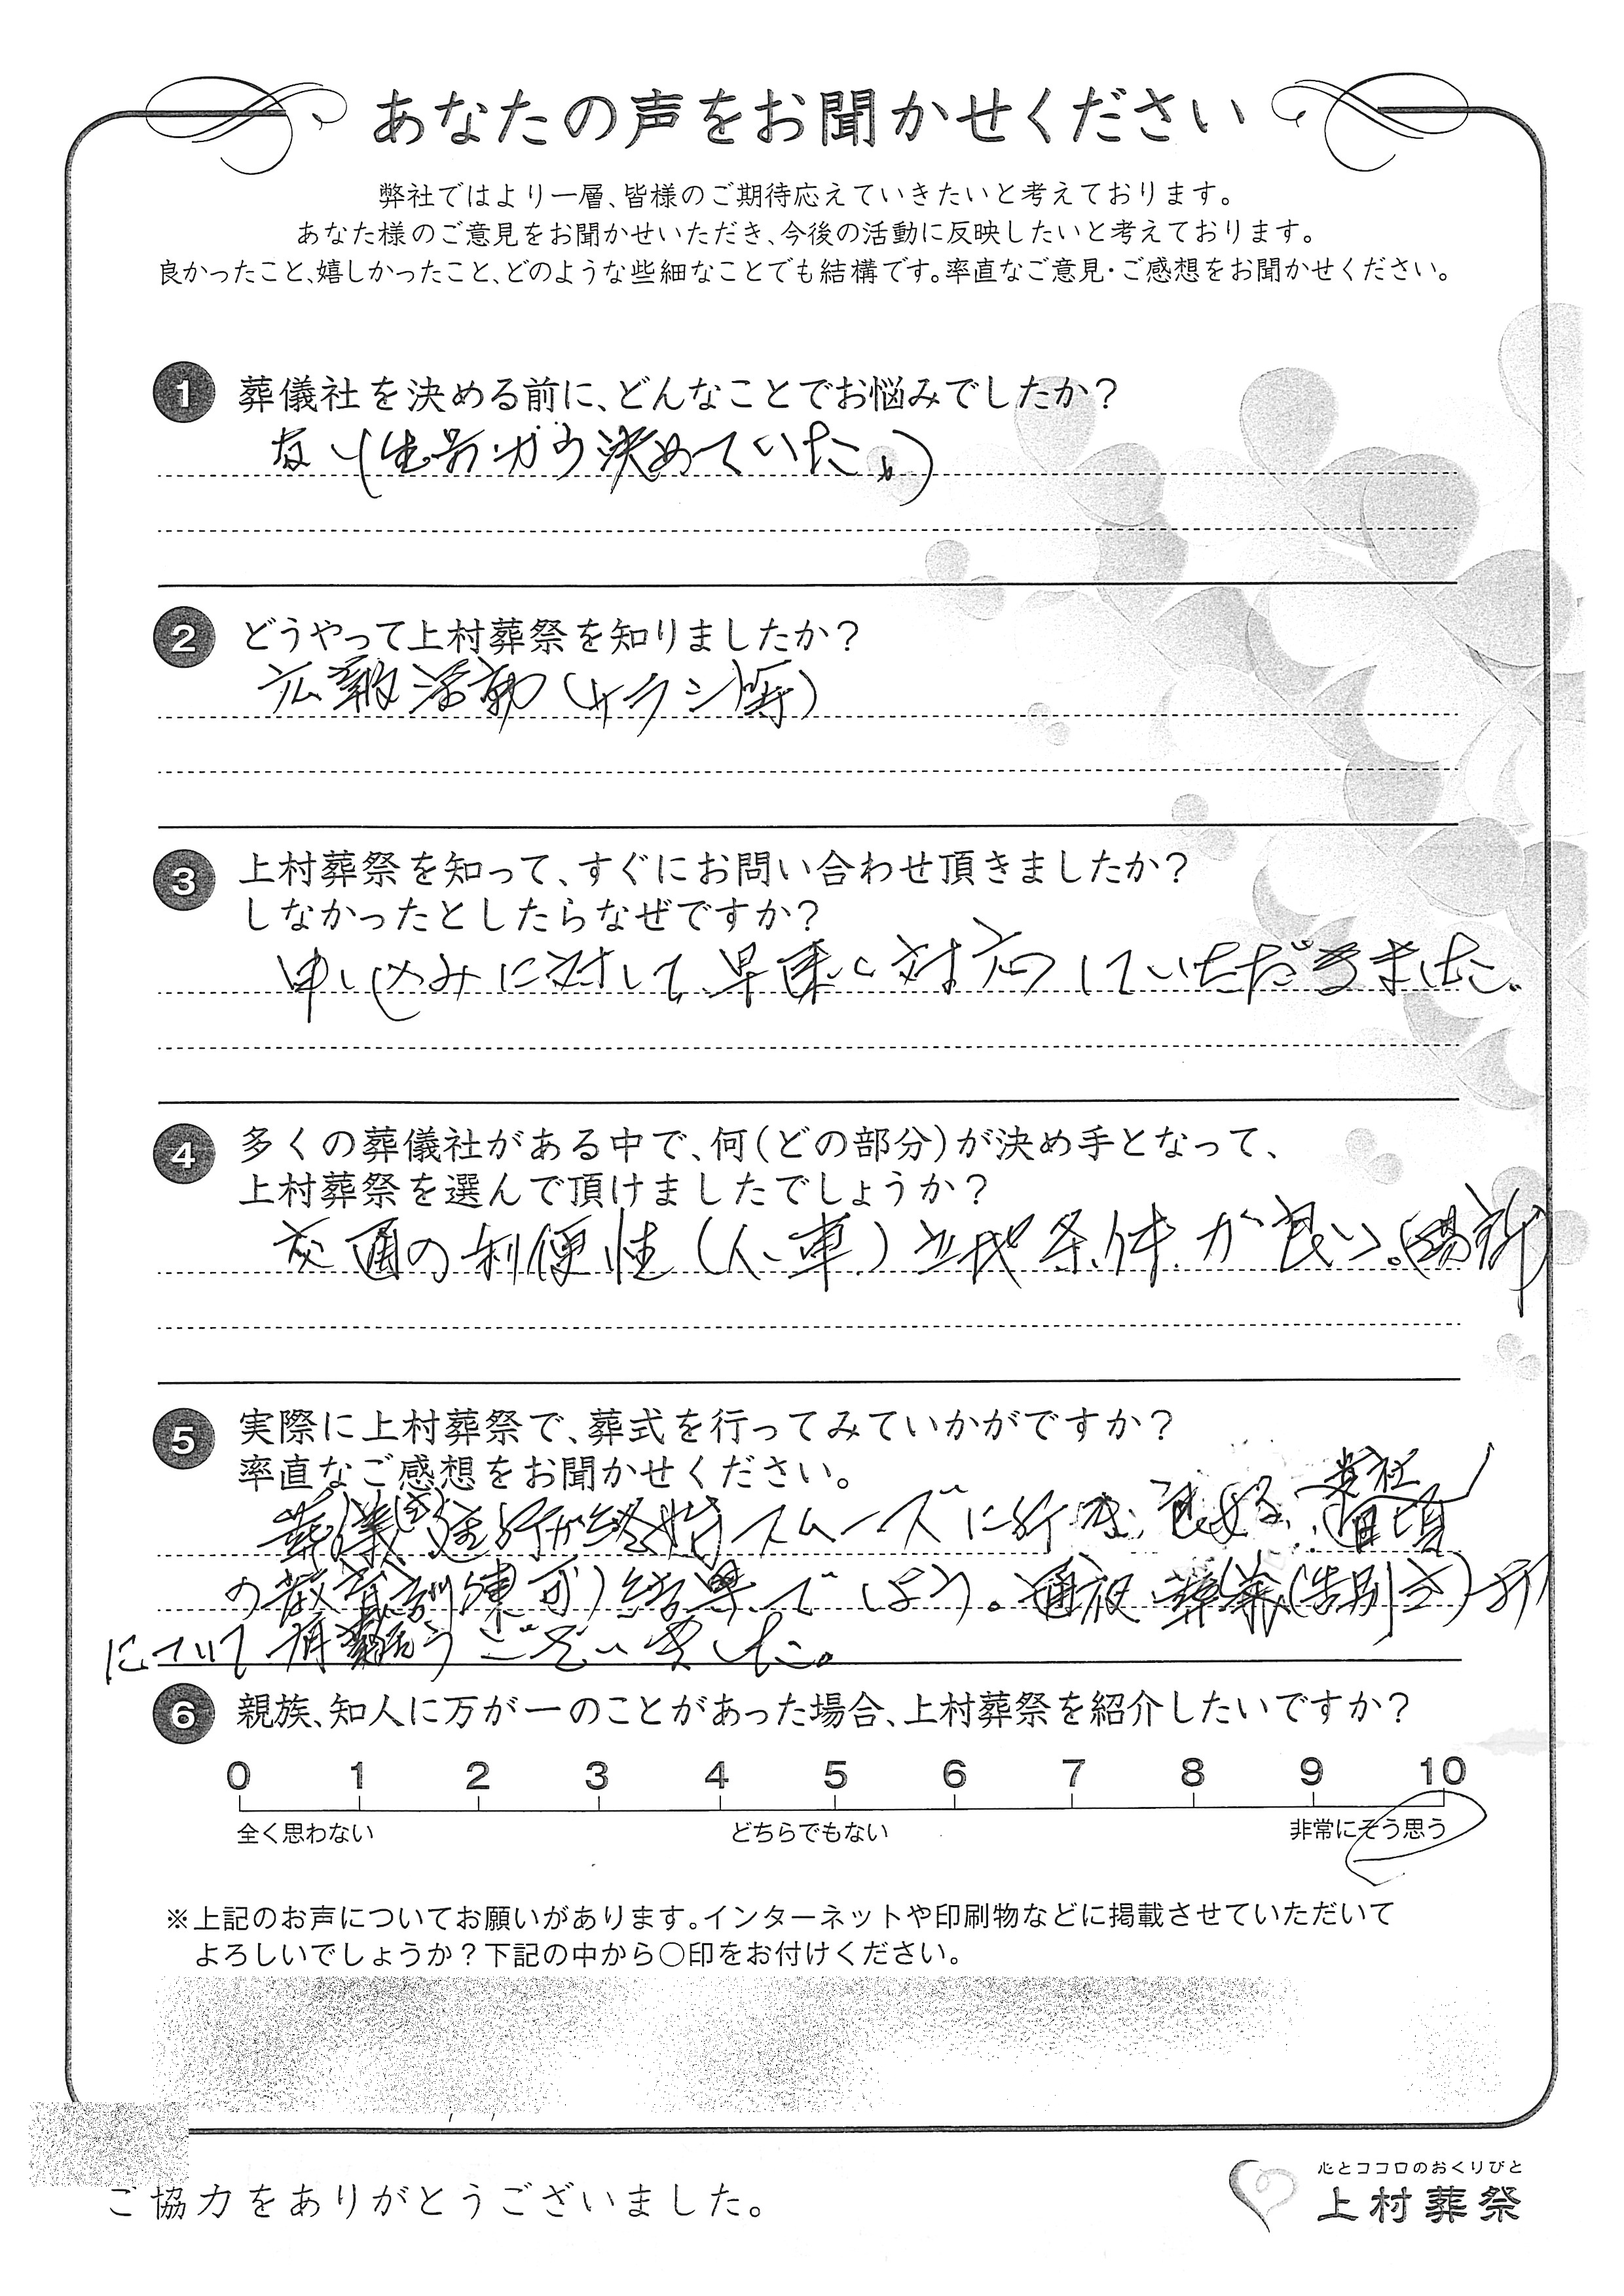 あなたの声をお聞かせください
弊社ではより一層、皆様のご期待応えていきたいと考えております。
あなた様のご意見をお聞かせいただき、今後の活動に反映したいと考えております。
良かったこと、嬉しかったこと、どのような些細なことでも結構です。率直なご意見・ご感想をお聞かせください。
1 葬儀社を決める前に、どんなことでお悩みでしたか？
なし(生前から決めていた。)
2 どうやって上村葬祭を知りましたか？
広報活動(チラシ等)
3 上村葬祭を知って、すぐにお問い合わせ頂きましたか？
しなかったとしたらなぜですか？
申し込みに対して、早速に対応していただきました。
4 多くの葬儀社がある中で、何(どの部分)が決め手となって、
上村葬祭を選んで頂けましたでしょうか？
交通の利便性(人、車)立地条件が良い。(場所)
5 実際に上村葬祭で、葬式を行ってみていかがですか？
率直なご感想をお聞かせください。
貴社
葬儀(式)進行が終始スムーズに行き 日頃
の教育訓練の結果でしょう。通夜、葬儀(告別式)
について有難うございました。
6 親族、知人に万が一のことがあった場合、上村葬祭を紹介したいですか？
0 1 2 3 4 5 6 7 8 9 10
全く思わない どちらでもない 非常にそう思う
※上記のお声についてお願いがあります。インターネットや印刷物などに掲載させていただいて
よろしいでしょうか？下記の中から○印をお付けください。
ご協力をありがとうございました。
心とココロのおくりびと
上村葬祭